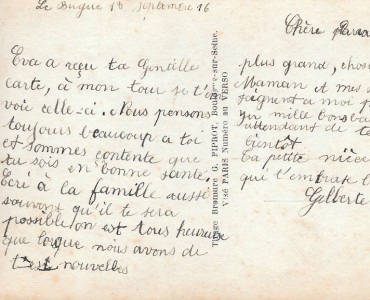 Le Bugue 18 Septembre 16
Chère
Eva a reçu ta Gentille
carte, à mon tour je t'en
voie celle-ci. Nous pensons
toujours beaucoup a toi
et sommes contente que
tu sois en bonne santé.
Ecri à la famille aussi
souvant qu'il te sera
possible, on est tous heureuse
que lorque nous avons de
t nouvelles
Tirage Bromure G. PIPROT, Boulogne-sur-Seine.
Visé PARIS Numéro au VERSO
plus grand, chos
Maman et mes s
joignent a moi p
un mille bons ba
attendant de te
bientôt
Ta petite nièce
qui t'embrasse
Gilberte